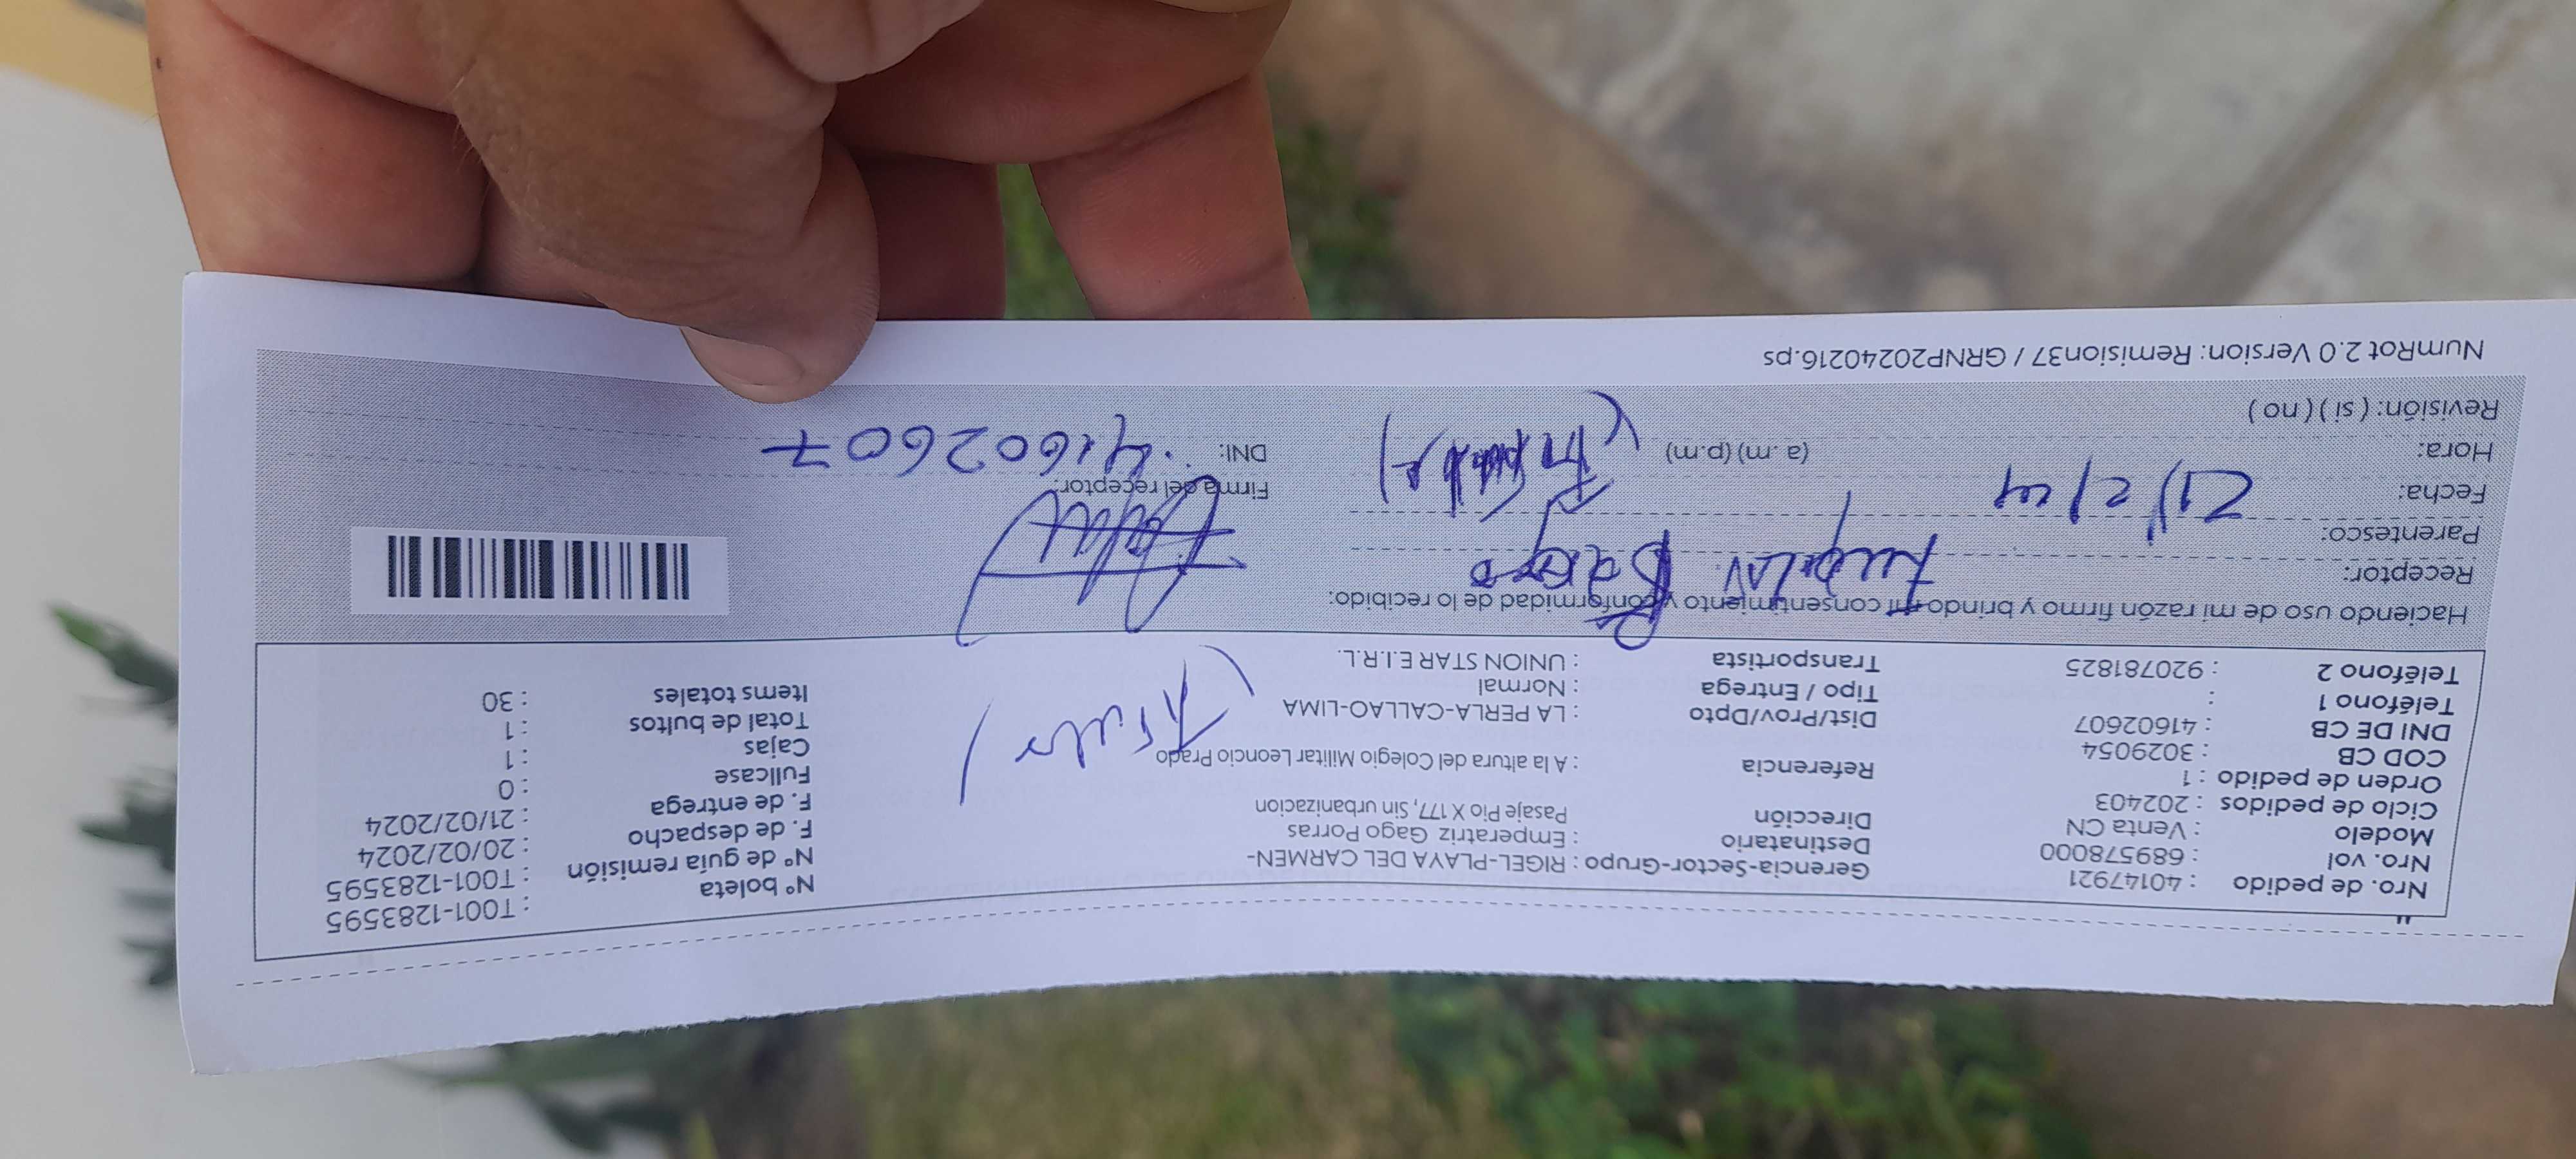 Nro. de pedido : 40147921
Nro. vol : 689578000
Modelo : Venta CN
Ciclo de pedidos : 202403
Orden de pedido : 1
COD CB : 3029054
DNI DE CB : 41602607
Teléfono 1 :
Teléfono 2 : 920781825
Gerencia-Sector-Grupo : RIGEL-PLAYA DEL CARMEN-
Destinatario : Emperatriz Gago Porras
Dirección Pasaje Pio X 177, Sin urbanizacion
Referencia : A la altura del Colegio Militar Leoncio Prado
Dist/Prov/Dpto : LA PERLA-CALLAO-LIMA
Tipo / Entrega : Normal
Transportista : UNION STAR E.I.R.L.
Nº boleta : T001-1283595
Nº de guía remisión : T001-1283595
F. de despacho : 20/02/2024
F. de entrega : 21/02/2024
Fullcase : 0
Cajas : 1
Total de bultos : 1
Items totales : 30
Haciendo uso de mi razón firmo y brindo mi consentimiento y conformidad de lo recibido:
Receptor:
Parentesco:
Fecha: 21/2/24
Hora: (a .m) (p.m)
Revisión: ( si ) ( no )
Firma del receptor:
DNI: 41602607
NumRot 2.0 Version: Remision37 / GRNP20240216.ps